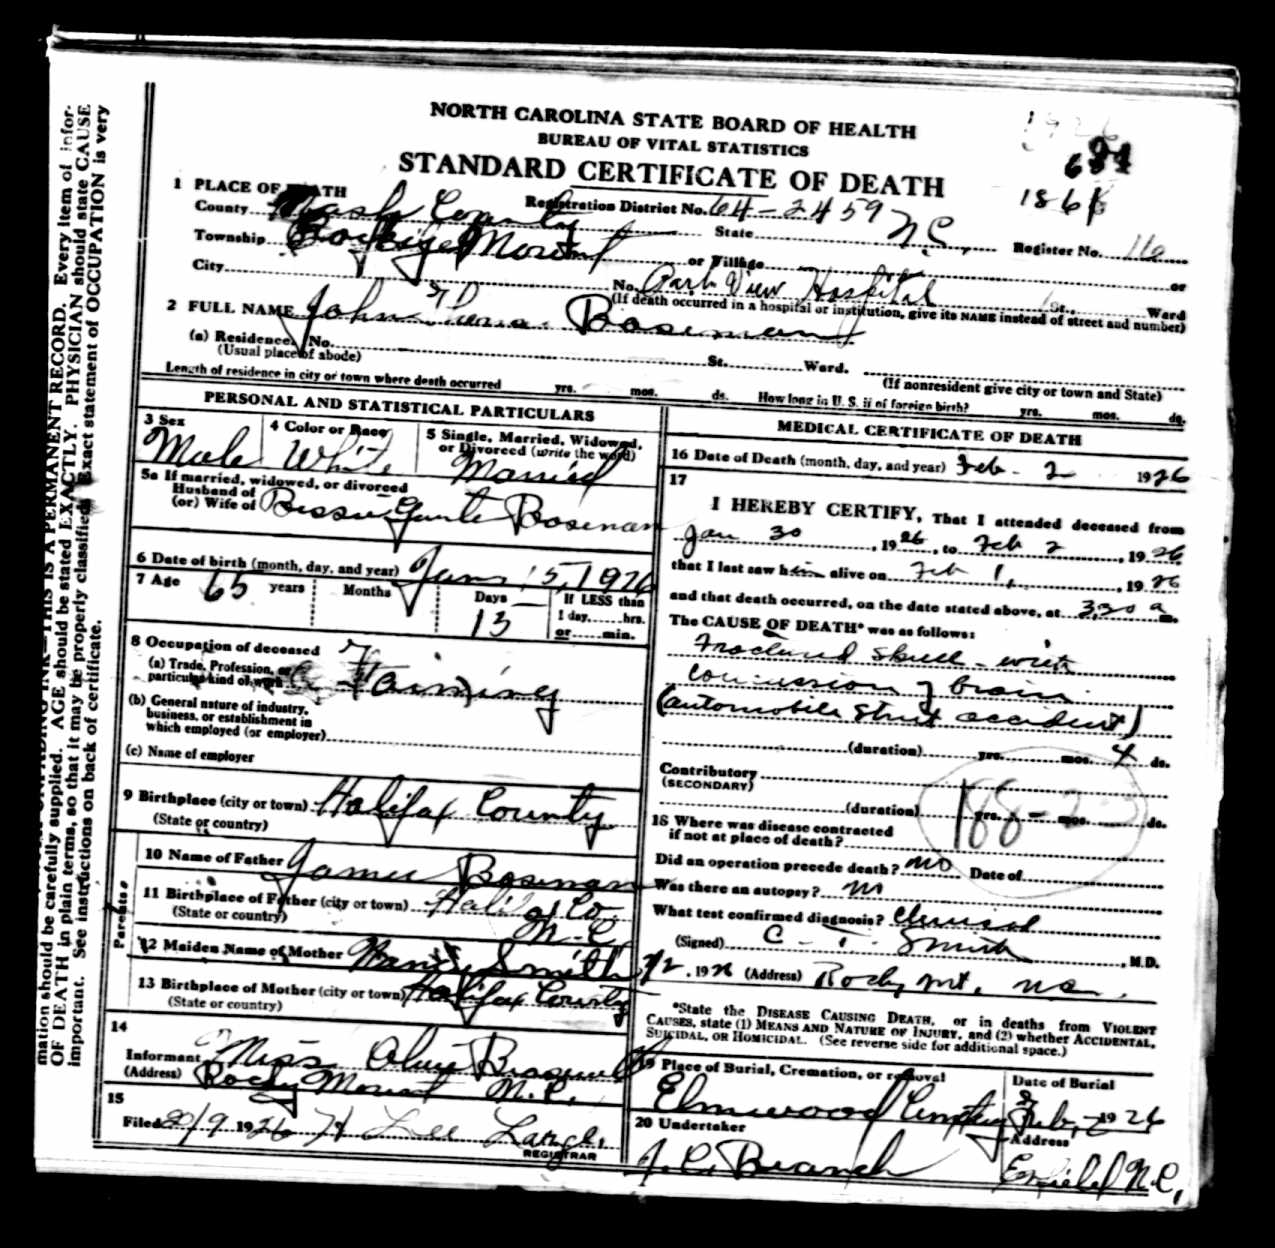 mation should be carefully supplied. AGE should be stated EXACTLY. PHYSICIAN should state CAUSE
OF DEATH in plain terms, so that it may be properly classified. Exact statement of OCCUPATION is very
important. See instructions on back of certificate.
NORTH CAROLINA STATE BOARD OF HEALTH
BUREAU OF VITAL STATISTICS
STANDARD CERTIFICATE OF DEATH
1 PLACE OF DEATH
County Nash County Registration District No. 64-2459 State N.C. Register No. 116
Township Rocky Mount or Village or
City No. Park View Hospital St., Ward
(If death occurred in a hospital or institution, give its NAME instead of street and number)
2 FULL NAME John Boseman
(a) Residence. No. St. Ward.
(Usual place of abode) (If nonresident give city or town and State)
Length of residence in city or town where death occurred yrs. mos. ds. How long in U. S. if of foreign birth? yrs. mos. ds.
PERSONAL AND STATISTICAL PARTICULARS
3 Sex Male
4 Color or Race White
5 Single, Married, Widowed, or Divorced (write the word) Married
5a If married, widowed, or divorced
Husband of
(or) Wife of Bessie Boseman
6 Date of birth (month, day, and year) Jan 15, 1926
7 Age 65 years Months Days 13 If LESS than
1 day, hrs.
or min.
8 Occupation of deceased
(a) Trade, Profession, or
particular kind of work Farming
(b) General nature of industry,
business, or establishment in
which employed (or employer)
(c) Name of employer
9 Birthplace (city or town) Halifax County
(State or country)
Parents
10 Name of Father James Boseman
11 Birthplace of Father (city or town) Halifax Co.
(State or country) N.C.
12 Maiden Name of Mother Nancy Smith
13 Birthplace of Mother (city or town) Halifax County
(State or country)
14
Informant Miss Olive Braswell
(Address) Rocky Mount N.C.
15
Filed 2/9 1926 H Lee
REGISTRAR
MEDICAL CERTIFICATE OF DEATH
16 Date of Death (month, day, and year) Feb - 2 1926
17
I HEREBY CERTIFY, That I attended deceased from
Jan 30, 1926, to Feb 2, 1926
that I last saw him alive on Feb 1, 1926
and that death occurred, on the date stated above, at 3:30 a m.
The CAUSE OF DEATH* was as follows:
Fractured skull - with
concussion of brain
(automobile street accident)
(duration) yrs. mos. 4 ds.
Contributory
(SECONDARY)
(duration) yrs. mos. ds.
188-
18 Where was disease contracted
if not at place of death?
Did an operation precede death? no Date of
Was there an autopsy? no
What test confirmed diagnosis? Clinical
(Signed) C. T. Smith, M.D.
2/2, 1926 (Address) Rocky Mt. N.C.
*State the DISEASE CAUSING DEATH, or in deaths from VIOLENT
CAUSES, state (1) MEANS AND NATURE OF INJURY, and (2) whether ACCIDENTAL,
SUICIDAL, OR HOMICIDAL. (See reverse side for additional space.)
19 Place of Burial, Cremation, or removal Date of Burial
Elmwood Cemetery Feb, 1926
20 Undertaker Address
J. C. Branch Enfield N.C.